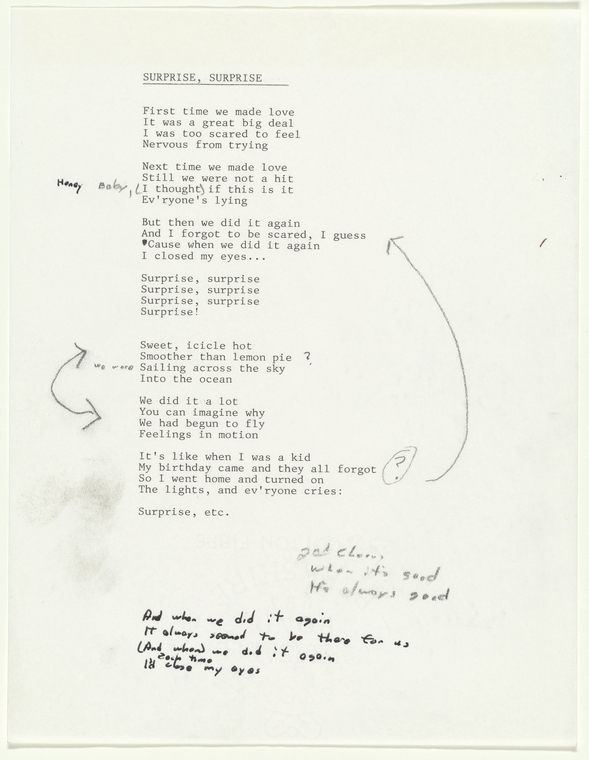 SURPRISE, SURPRISE
First time we made love
It was a great big deal
I was too scared to feel
Nervous from trying
Next time we made love
Still we were not a hit
Honey Baby, (I thought) if this is it
Ev'ryone's lying
But then we did it again
And I forgot to be scared, I guess
'Cause when we did it again
I closed my eyes...
Surprise, surprise
Surprise, surprise
Surprise, surprise
Surprise!
Sweet, icicle hot
Smoother than lemon pie ?
we were Sailing across the sky
Into the ocean
We did it a lot
You can imagine why
We had begun to fly
Feelings in motion
It's like when I was a kid
My birthday came and they all forgot ?
So I went home and turned on
The lights, and ev'ryone cries:
Surprise, etc.
2nd Chorus
when it's good
It's always good
And when we did it again
It always seemed to be there for us
(And when) we did it again
each time
I'd close my eyes